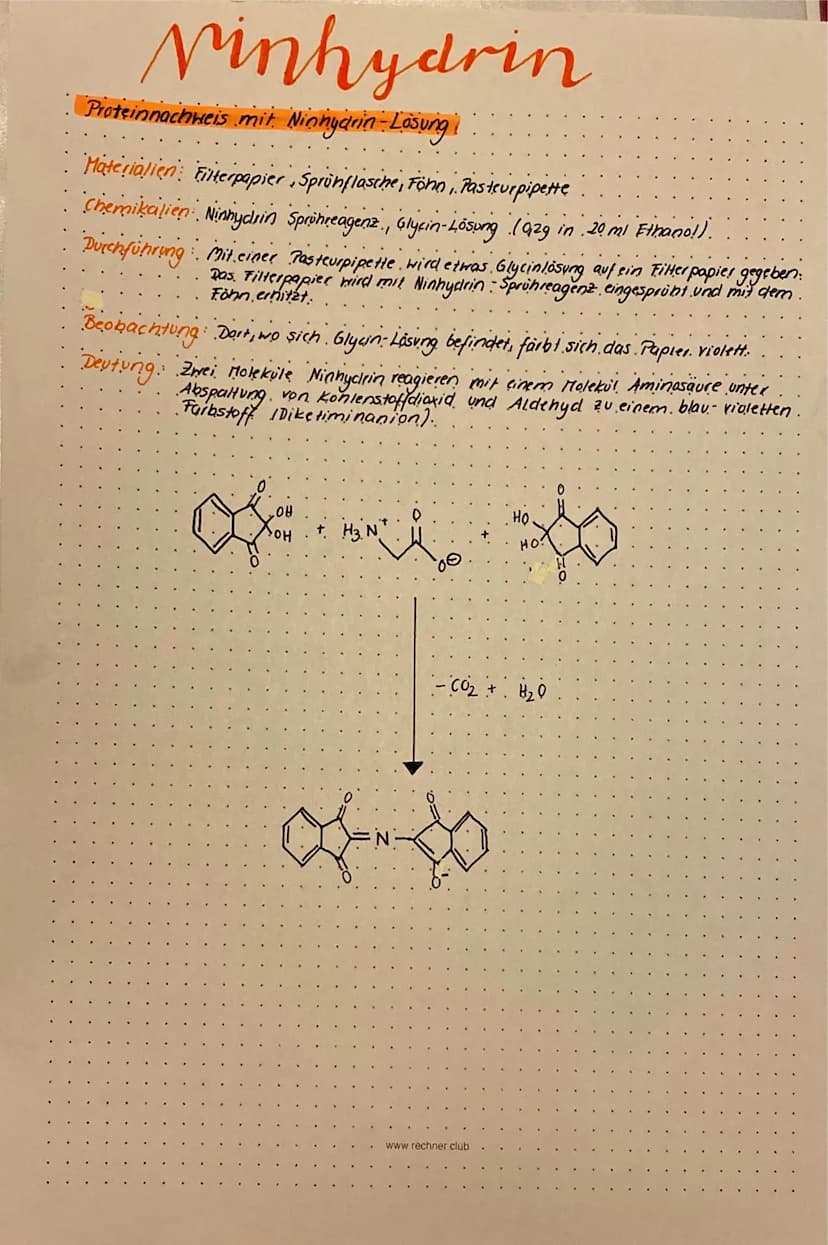 Ninhydrin
Proteinnachweis mit Ninhydrin-Lösung
Materialien: Filterpapier, Sprühflasche, Föhn, Pasteurpipette
Chemikalien: Ninhydrin Sprühreagenz, Glycin-Lösung (0,2g in 20 ml Ethanol).
Durchführung: Mit einer Pasteurpipette wird etwas Glycinlösung auf ein Filterpapier gegeben.
Das Filterpapier wird mit Ninhydrin-Sprühreagenz eingesprüht und mit dem
Föhn erhitzt.
Beobachtung: Dort, wo sich Glycin-Lösung befindet, färbt sich das Papier violett.
Deutung: Zwei Moleküle Ninhydrin reagieren mit einem Molekül Aminosäure unter
Abspaltung von Kohlenstoffdioxid und Aldehyd zu einem blau-violetten
Farbstoff (Diketiminanion).
O OH OH O + H3N+ O O⊖ + HO HO O O
- CO2 + H2O
O O =N- O O-
www.rechner.club